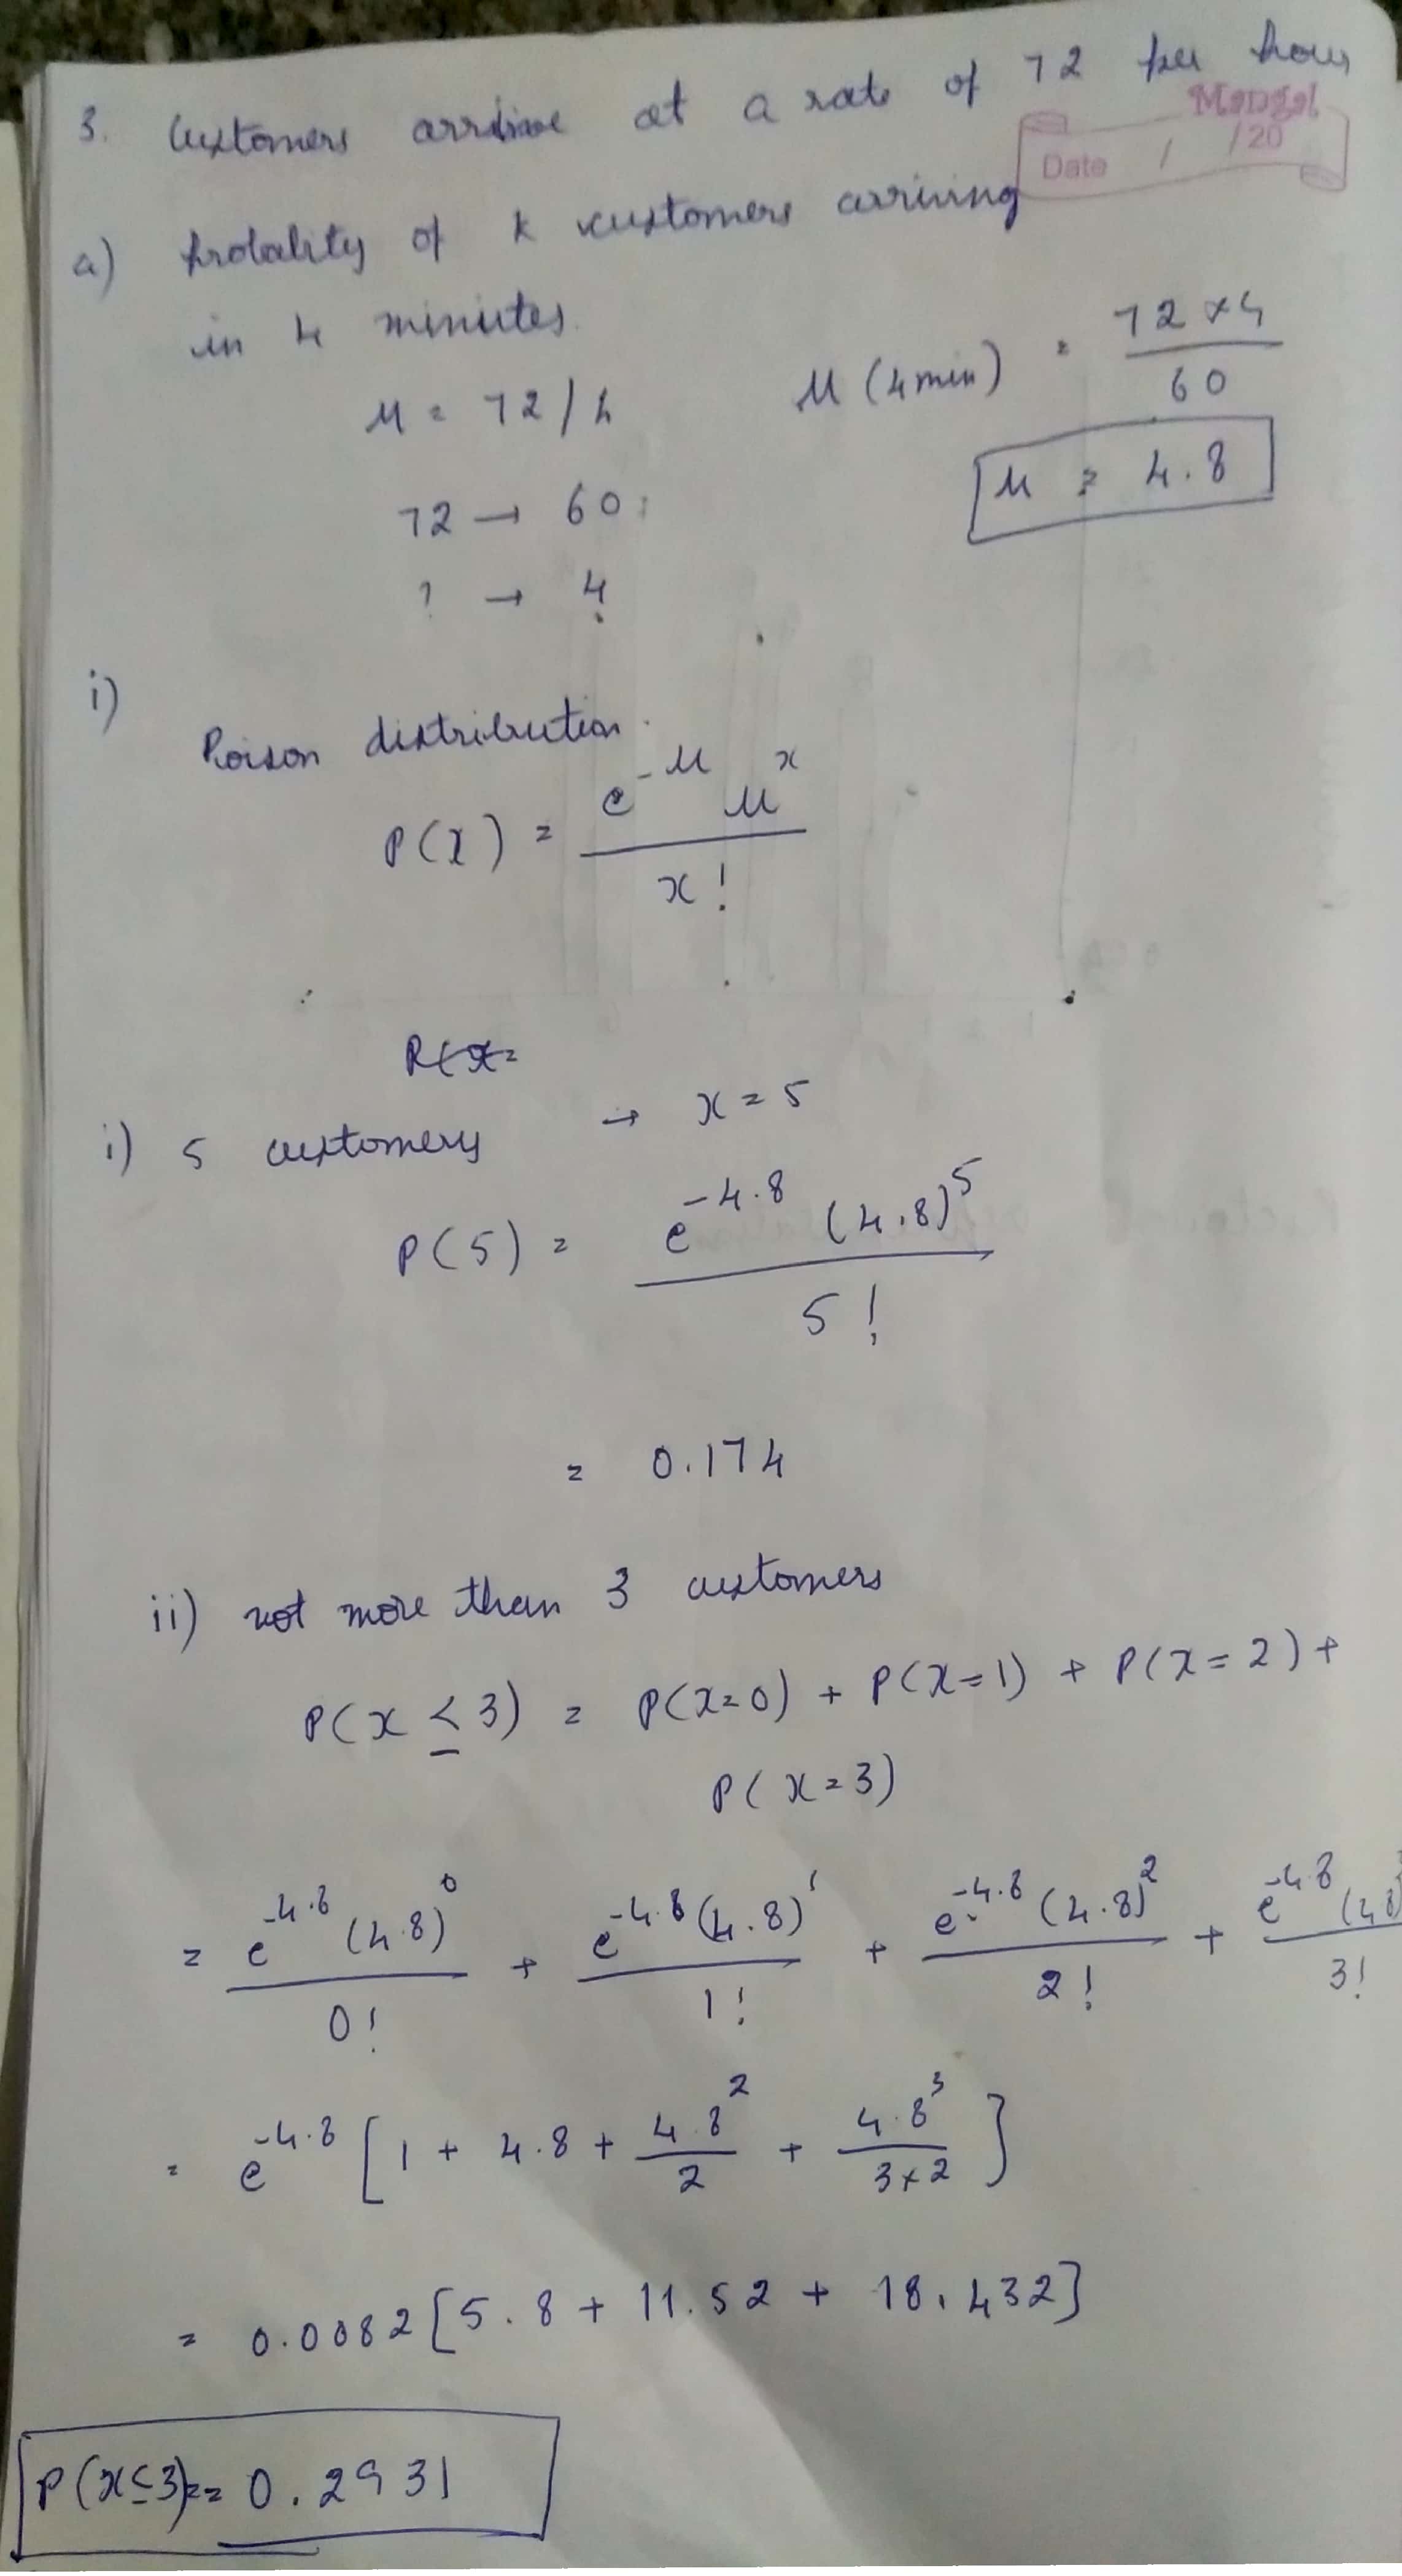 3. Customers arrive at a rate of 72 per hour
Mangal
Date / /20
a) probality of k customers arriving
in 4 minutes.
μ = 72/h
μ (4min) = 72×4/60
μ = 4.8
72 → 60
? → 4
i)
Poison distribution.
P(x) = e^-μ μ^x / x!
P(x=
i) 5 customers → x = 5
P(5) = e^-4.8 (4.8)^5 / 5!
= 0.174
ii) not more than 3 customers
P(x ≤ 3) = P(x=0) + P(x=1) + P(x=2) +
P(x=3)
= e^-4.8 (4.8)^0 / 0! + e^-4.8 (4.8)^1 / 1! + e^-4.8 (4.8)^2 / 2! + e^-4.8 (4.8) / 3!
= e^-4.8 [1 + 4.8 + 4.8^2 / 2 + 4.8^3 / 3×2]
= 0.0082 [5.8 + 11.52 + 18.432]
P(x≤3) = 0.2931